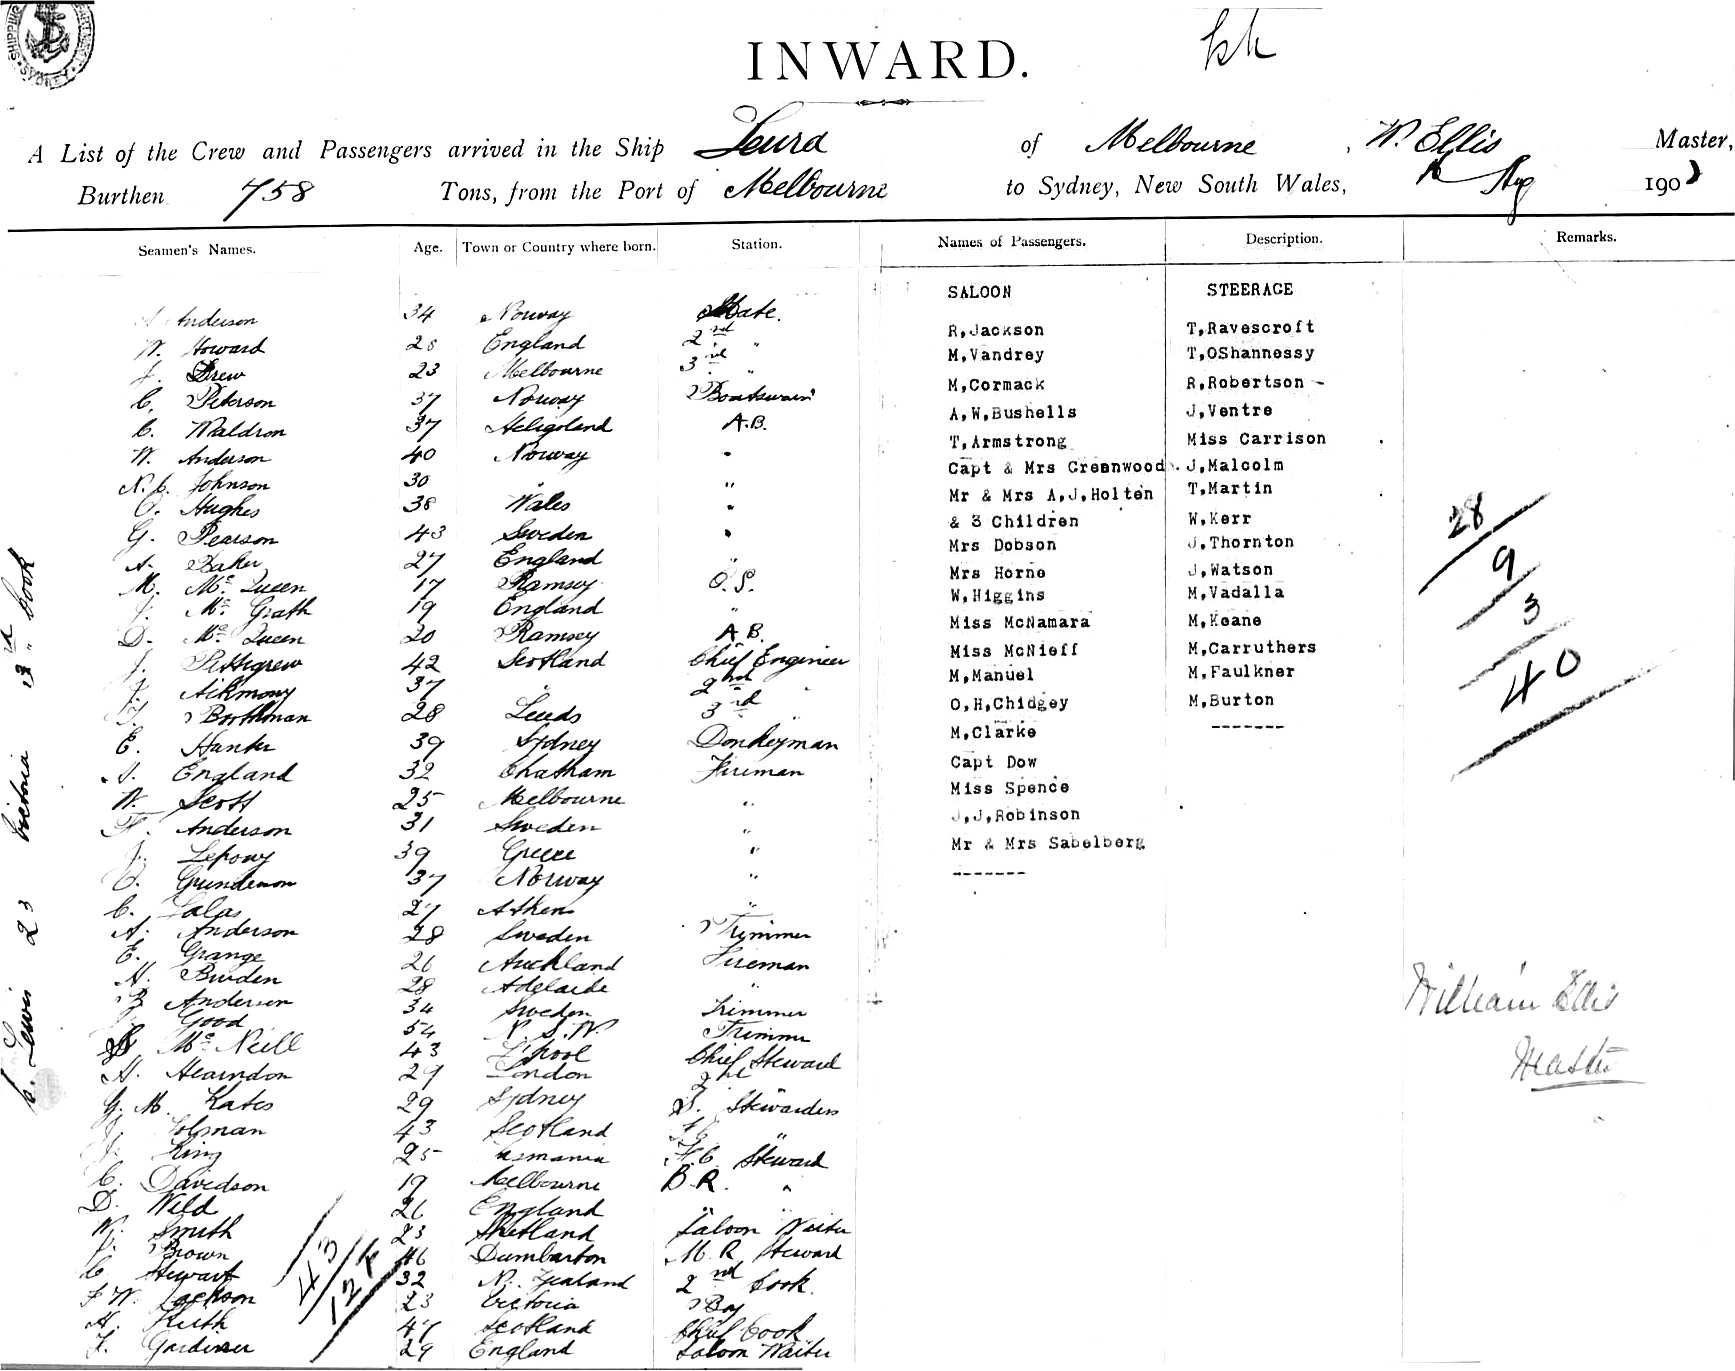 INWARD.
A List of the Crew and Passengers arrived in the Ship Leura of Melbourne, W. Ellis Master,
Burthen 758 Tons, from the Port of Melbourne to Sydney, New South Wales, Aug 190
Seamen's Names. Age. Town or Country where born. Station. Names of Passengers. Description. Remarks.
SALOON STEERAGE
Anderson 34 Norway Mate.
W. Howard 28 England 2nd "
J. Drew 23 Melbourne 3rd "
C. Peterson 37 Norway Boatswain
C. Waldron 37 Heligoland A.B.
W. Anderson 40 Norway "
N.C. Johnson 30 "
O. Hughes 38 Wales "
G. Pearson 43 Sweden "
A. Baker 27 England "
M. McQueen 17 Ramsey O.S.
J. McGrath 19 England "
D. McQueen 20 Ramsey A.B.
J. Pettigrew 42 Scotland Chief Engineer
J. Aikmony 37 " 2nd "
Boothman 28 Leeds 3rd "
E. Hunter 39 Sydney Donkeyman
A. England 32 Chatham Fireman
W. Scott 25 Melbourne "
F. Anderson 31 Sweden "
J. Lepony 39 Greece "
O. Gunderson 37 Norway "
C. Lalas 27 Athens "
A. Anderson 28 Sweden Trimmer
E. Grange 26 Auckland Fireman
H. Burden 28 Adelaide "
Anderson 34 Sweden Trimmer
Good 54 N.S.W. Trimmer
McNeill 43 L'pool Chief Steward
H. Hearndon 29 London 2nd "
G. M. Kates 29 Sydney S. Stewardess
J. Tolman 43 Scotland "
J. King 25 Tasmania F.C. Steward
C. Davidson 19 Melbourne B.R. "
D. Wild 26 England "
W. Smith 23 Shetland Saloon Waiter
J. Brown 46 Dumbarton M.R. Steward
C. Stewart 32 N. Zealand 2nd Cook.
F W. Jackson 23 Victoria Boy
A. Keith 47 Scotland Chief Cook
F. Gardiner 29 England Saloon Waiter
C. Lewis 23 Victoria 3rd Cook
43
12
R,Jackson T,Ravescroft
M,Vandrey T,OShannessy
M,Cormack R,Robertson -
A,W,Bushells J,Ventre
T,Armstrong Miss Carrison
Capt & Mrs Greenwood. J,Malcolm
Mr & Mrs A,J,Holten T,Martin
& 3 Children W,Kerr
Mrs Dobson J,Thornton
Mrs Horne J,Watson
W,Higgins M,Vadalla
Miss McNamara M,Keane
Miss McNieff M,Carruthers
M,Manuel M,Faulkner
O,H,Chidgey M,Burton
M,Clarke -------
Capt Dow
Miss Spence
J,J,Robinson
Mr & Mrs Sabelberg
-------
28
9
3
40
William Ellis
Master